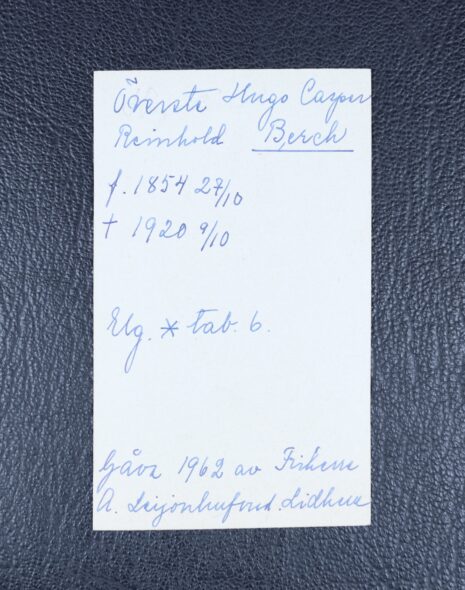 Överste Hugo Casper
Reinhold Berch
f. 1854 27/10
† 1920 9/10
Elg. * tab. 6.
Gåva 1962 av Friherre
A. Leijonhufvud. Lidhem